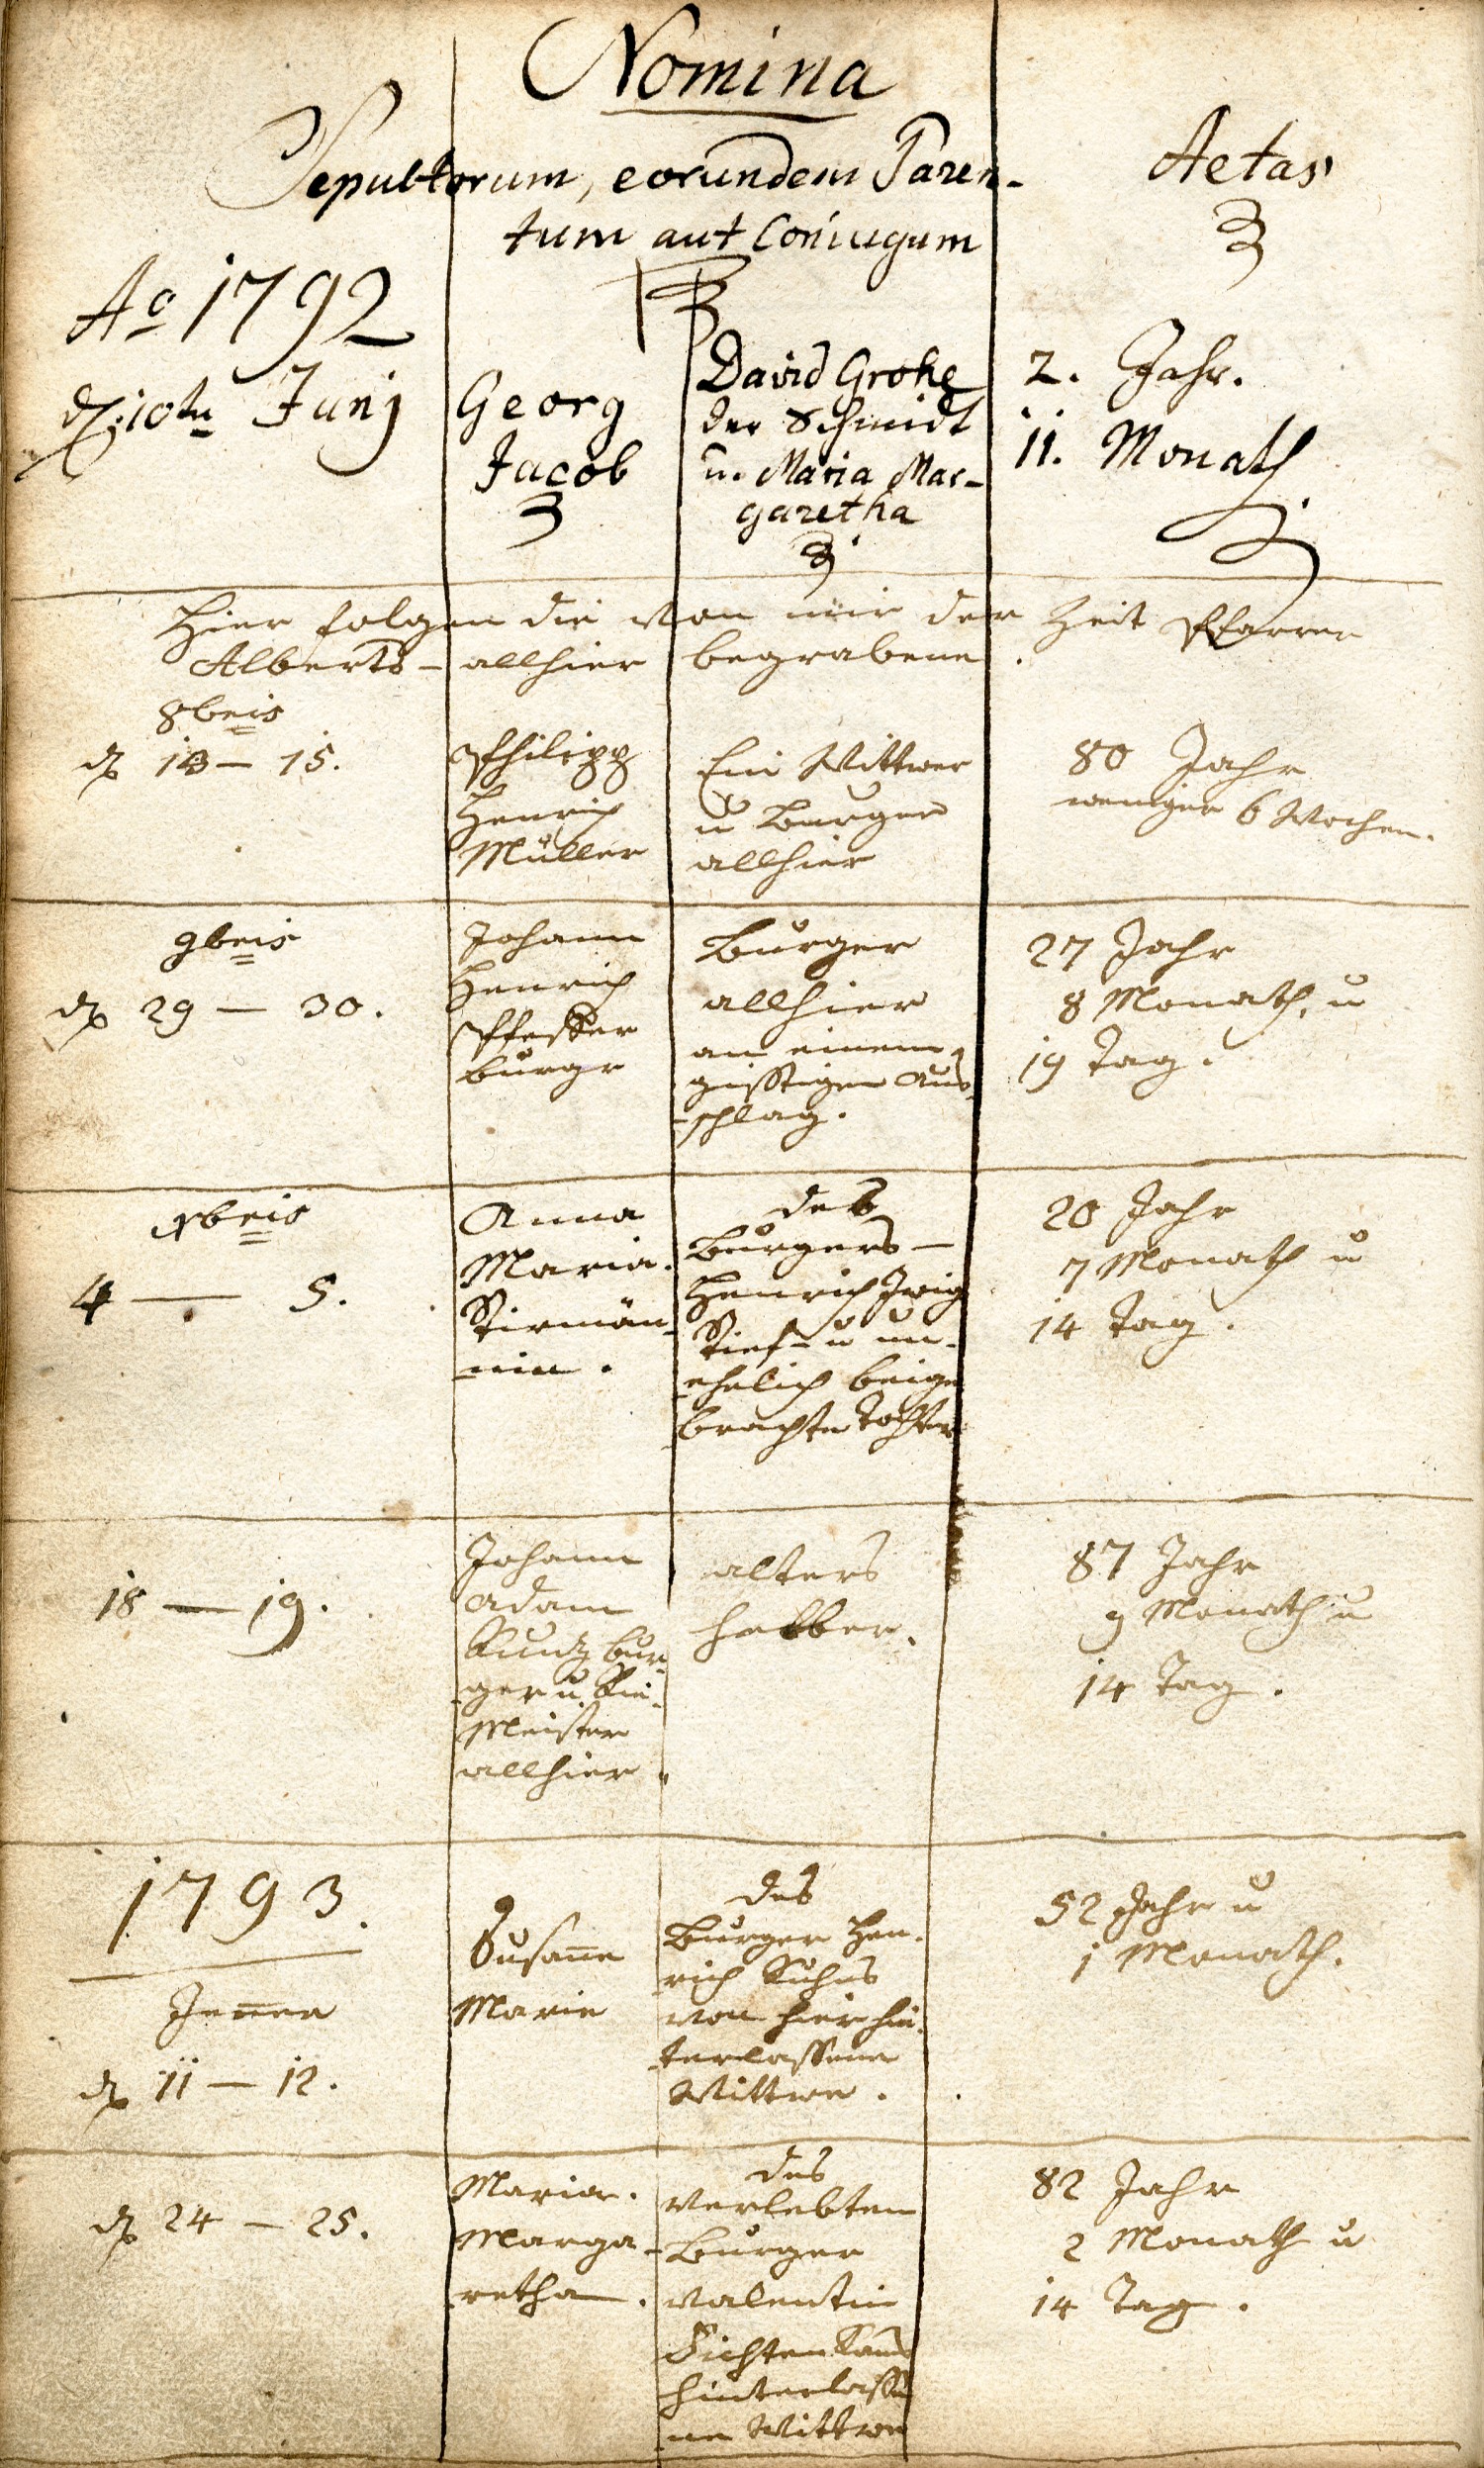 Nomina
Sepultorum, eorundem Paren-
tum aut Coniugum
Aetas
Ao 1792
d. 10tn Junj
Georg
Jacob
David Grohe
der Schmidt
u. Maria Mar-
garetha
2. Jahr.
11. Monath.
Hier folgen die von mir der Zeit Pfarrer
Alberts - allhier begrabene.
8beis
d 13 - 15.
Philipp
Henrich
Müller
Ein Wittwer
u Burger
allhier
80 Jahr
weniger 6 Wochen.
9beis
d 29 - 30.
Johann
Henrich
burgr
Burger
allhier
an einem
gifftigen Aus-
-schlag.
27 Jahr
8 Monath, u
19 Tag.
Xbeis
4 - 5.
Anna
Maria
-nin.
des
Burgers -
Henrich
Stief- u un-
-ehelich beige
brachte Tochter
20 Jahr
7 Monath u
14 Tag.
18 - 19.
Johann
Adam
Kuntz bur-
ger u.
Meister
allhier.
alters
halber.
87 Jahr
9 Monath u
14 Tag.
1793.
Jenner
d 11 - 12.
Susanne
Marie
des
Burger Hen-
rich Kuhns
von hier hin-
terlassene
Wittwe.
52 Jahr u
1 Monath.
d 24 - 25.
Maria
Marga-
retha.
des
verlebten
Burger
Valentin
hinterlasse
ne Wittwe
82 Jahr
2 Monath u
14 Tag.